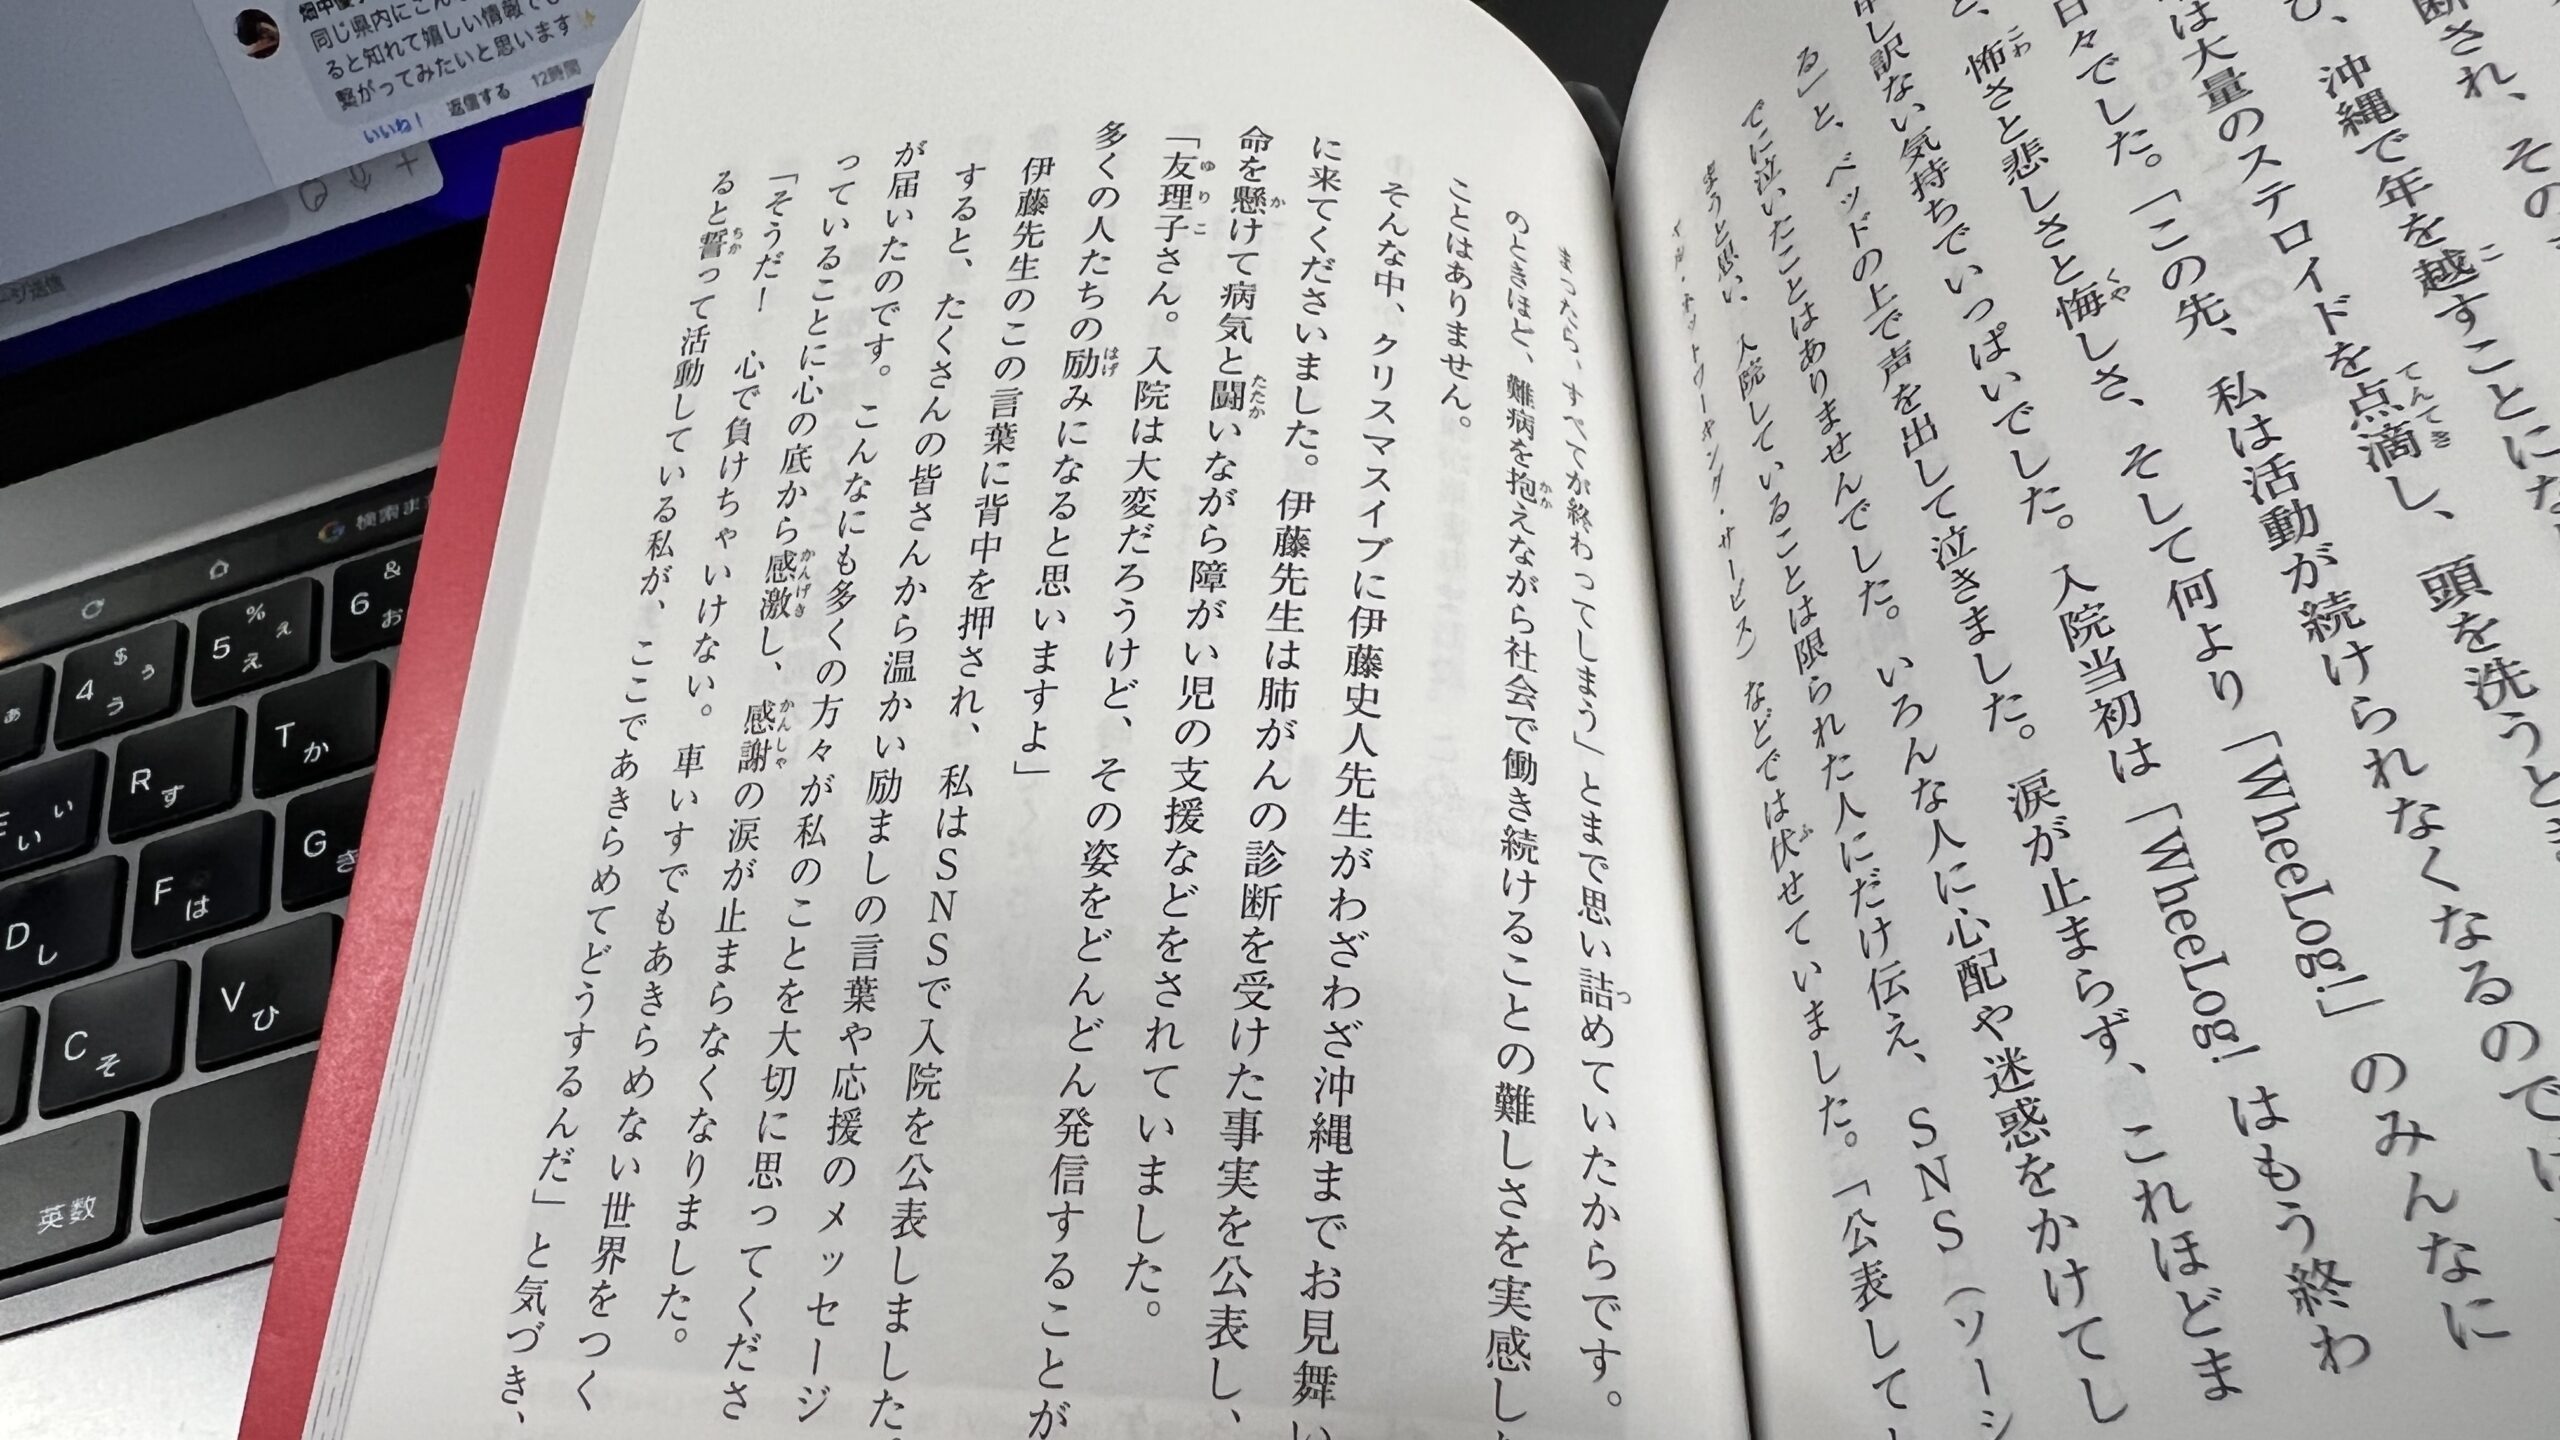 断され、その
び、沖縄で年を越すことにな
は大量のステロイドを点滴し、頭を洗うとき
日々でした。「この先、私は活動が続けられなくなるのでは
と、怖さと悲しさと悔しさ、そして何より「WheeLog!」のみんなに
申し訳ない気持ちでいっぱいでした。入院当初は「WheeLog! はもう終わ
る」と、ベッドの上で声を出して泣きました。涙が止まらず、これほどま
でに泣いたことはありませんでした。いろんな人に心配や迷惑をかけてし
まうと思い、入院していることは限られた人にだけ伝え、SNS（ソーシ
ャル・ネットワーキング・サービス）などでは伏せていました。「公表して
まったら、すべてが終わってしまう」とまで思い詰めていたからです。
のときほど、難病を抱えながら社会で働き続けることの難しさを実感し
ことはありません。
そんな中、クリスマスイブに伊藤史人先生がわざわざ沖縄までお見舞い
に来てくださいました。伊藤先生は肺がんの診断を受けた事実を公表し、
命を懸けて病気と闘いながら障がい児の支援などをされていました。
「友理子さん。入院は大変だろうけど、その姿をどんどん発信することが
多くの人たちの励みになると思いますよ」
伊藤先生のこの言葉に背中を押され、私はSNSで入院を公表しました。
すると、たくさんの皆さんから温かい励ましの言葉や応援のメッセージ
が届いたのです。こんなにも多くの方々が私のことを大切に思ってくださ
っていることに心の底から感激し、感謝の涙が止まらなくなりました。
「そうだ！　心で負けちゃいけない。車いすでもあきらめない世界をつく
ると誓って活動している私が、ここであきらめてどうするんだ」と気づき、
同じ県内にこん
ると知れて嬉しい情報でし
繋がってみたいと思います✨
いいね！ 返信する 12時間
検索ま
& 6 お
% 5 ぇ え
$ 4 ぅ う
ぁ
T か
R す
ぃ い
G き
F は
D し
V ひ
C そ
英数